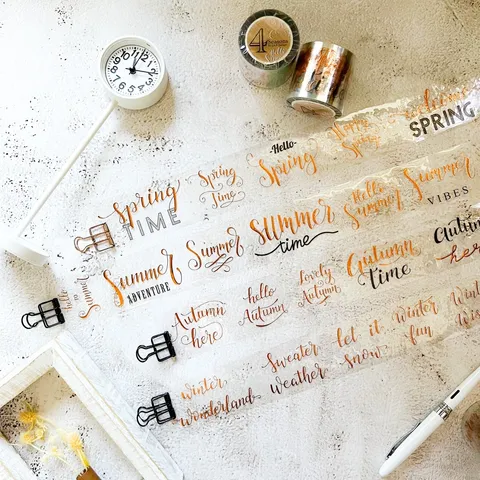 4 Seasons
Spring
TIME
Spring
Time
-Hello-
Spring
SPRING
Hello
Summer
Summer
ADVENTURE
Summer
Summer
time
Hello
Summer
Summer
VIBES
Autumn
here
hello
Autumn
Lovely
Autumn
Autumn
time
Autumn
here
winter
wonderland
Sweater
weather
let it
snow
Winter
fun